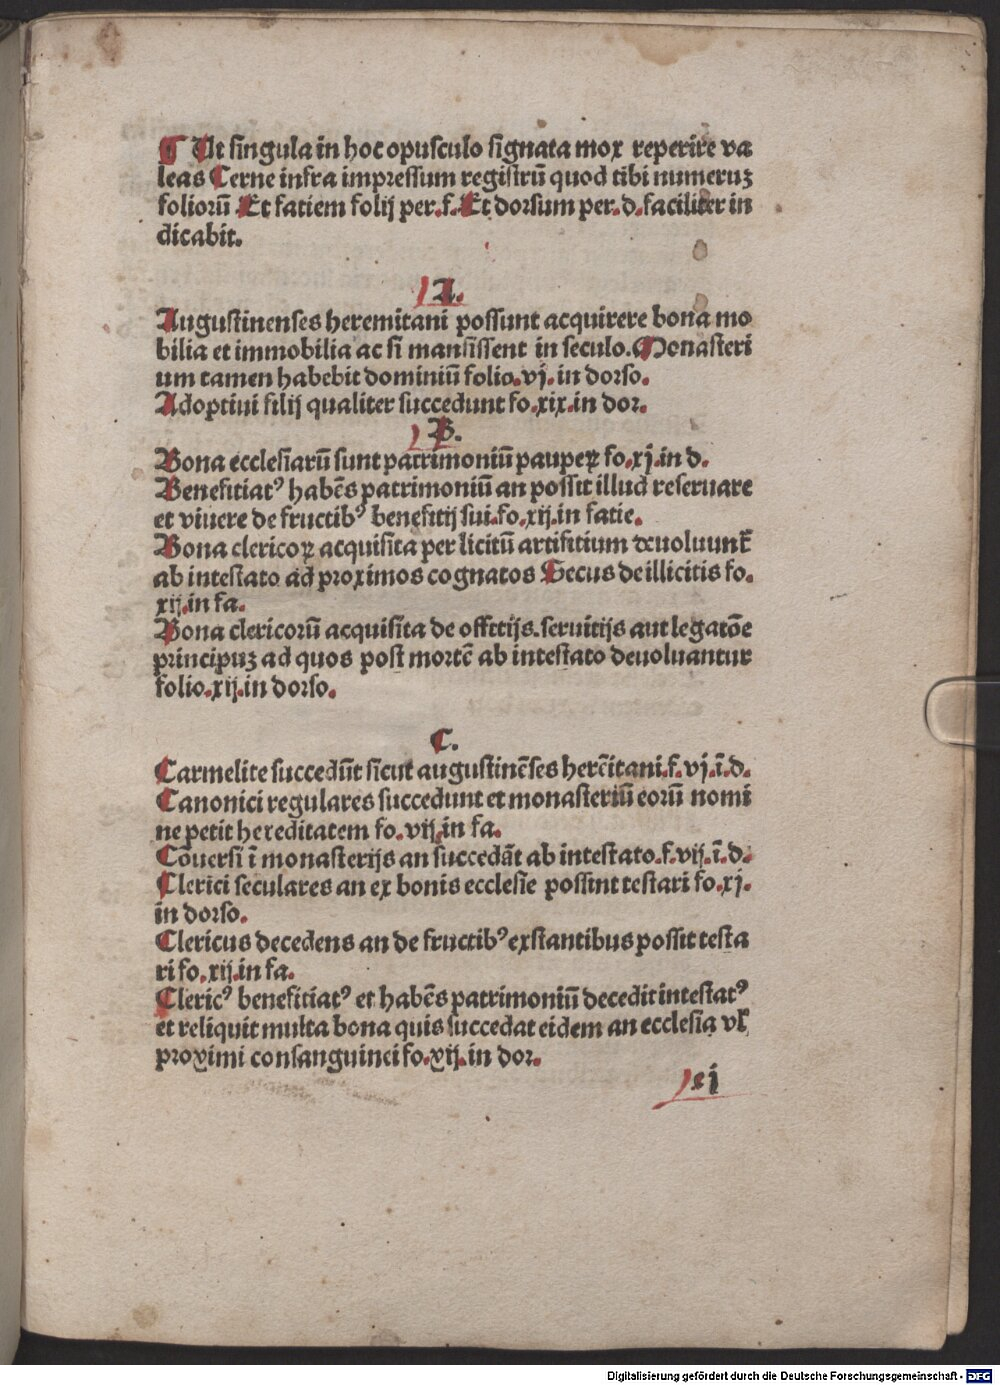 ¶ Ut singula in hoc opusculo signata mox reperire va
leas Cerne infra impressum registrū quod tibi numeruꝫ
foliorū Et fatiem folij per .f. Et dorsum per .d. faciliter in
dicabit.
A.
Augustinenses heremitani possunt acquirere bona mo
bilia et immobilia ac si mansissent in seculo. Monasteri
um tamen habebit dominiū folio .vj. in dorso.
Adoptiui filij qualiter succedunt fo .xix. in dor.
B.
Bona ecclesiarū sunt patrimoniū pauperꝝ fo .xj. in d.
Benefitiatꝰ habēs patrimoniū an possit illud reseruare
et viuere de fructibꝰ benefitij sui. fo .xij. in fatie.
Bona clericoꝝ acquisita per licitū artifitium deuoluunt̄
ab intestato ad proximos cognatos Secus de illicitis fo.
xij. in fa.
Bona clericorū acquisita de offitijs. seruitijs aut legatōe
principuꝫ ad quos post mortē ab intestato deuoluantur
folio .xij. in dorso.
C.
Carmelite succedūt sicut augustinēses herēitani. f. vj. ī. d.
Canonici regulares succedunt et monasteriū eorū nomi
ne petit hereditatem fo .vij. in fa.
Cōuersi ī monasterijs an succedāt ab intestato. f. vij. ī. d.
Clerici seculares an ex bonis ecclesie possint testari fo .xj.
in dorso.
Clericus decedens an de fructibꝰ exstantibus possit testa
ri fo .xij. in fa.
Clericꝰ benefitiatꝰ et habēs patrimoniū decedit intestatꝰ
et reliquit multa bona quis succedat eidem an ecclesia vl̄
proximi consanguinei fo .xij. in dor.
ej
Digitalisierung gefördert durch die Deutsche Forschungsgemeinschaft - DFG